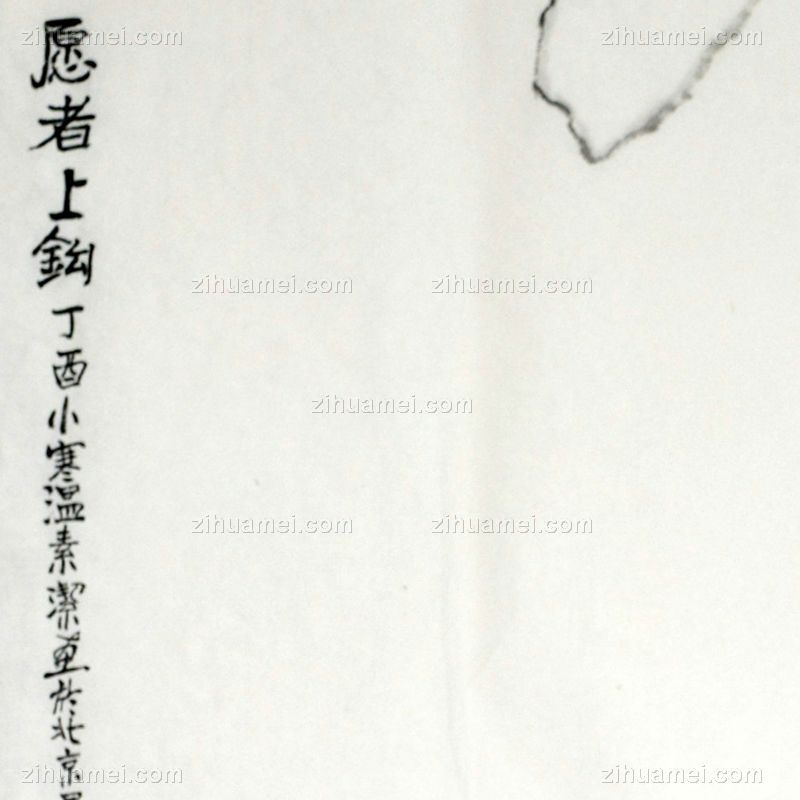 愿者上鈎丁酉小寒温素潔画於北京
zihuamei.com zihuamei.com
zihuamei.com zihuamei.com
zihuamei.com
zihuamei.com zihuamei.com
zihuamei.com zihuamei.com